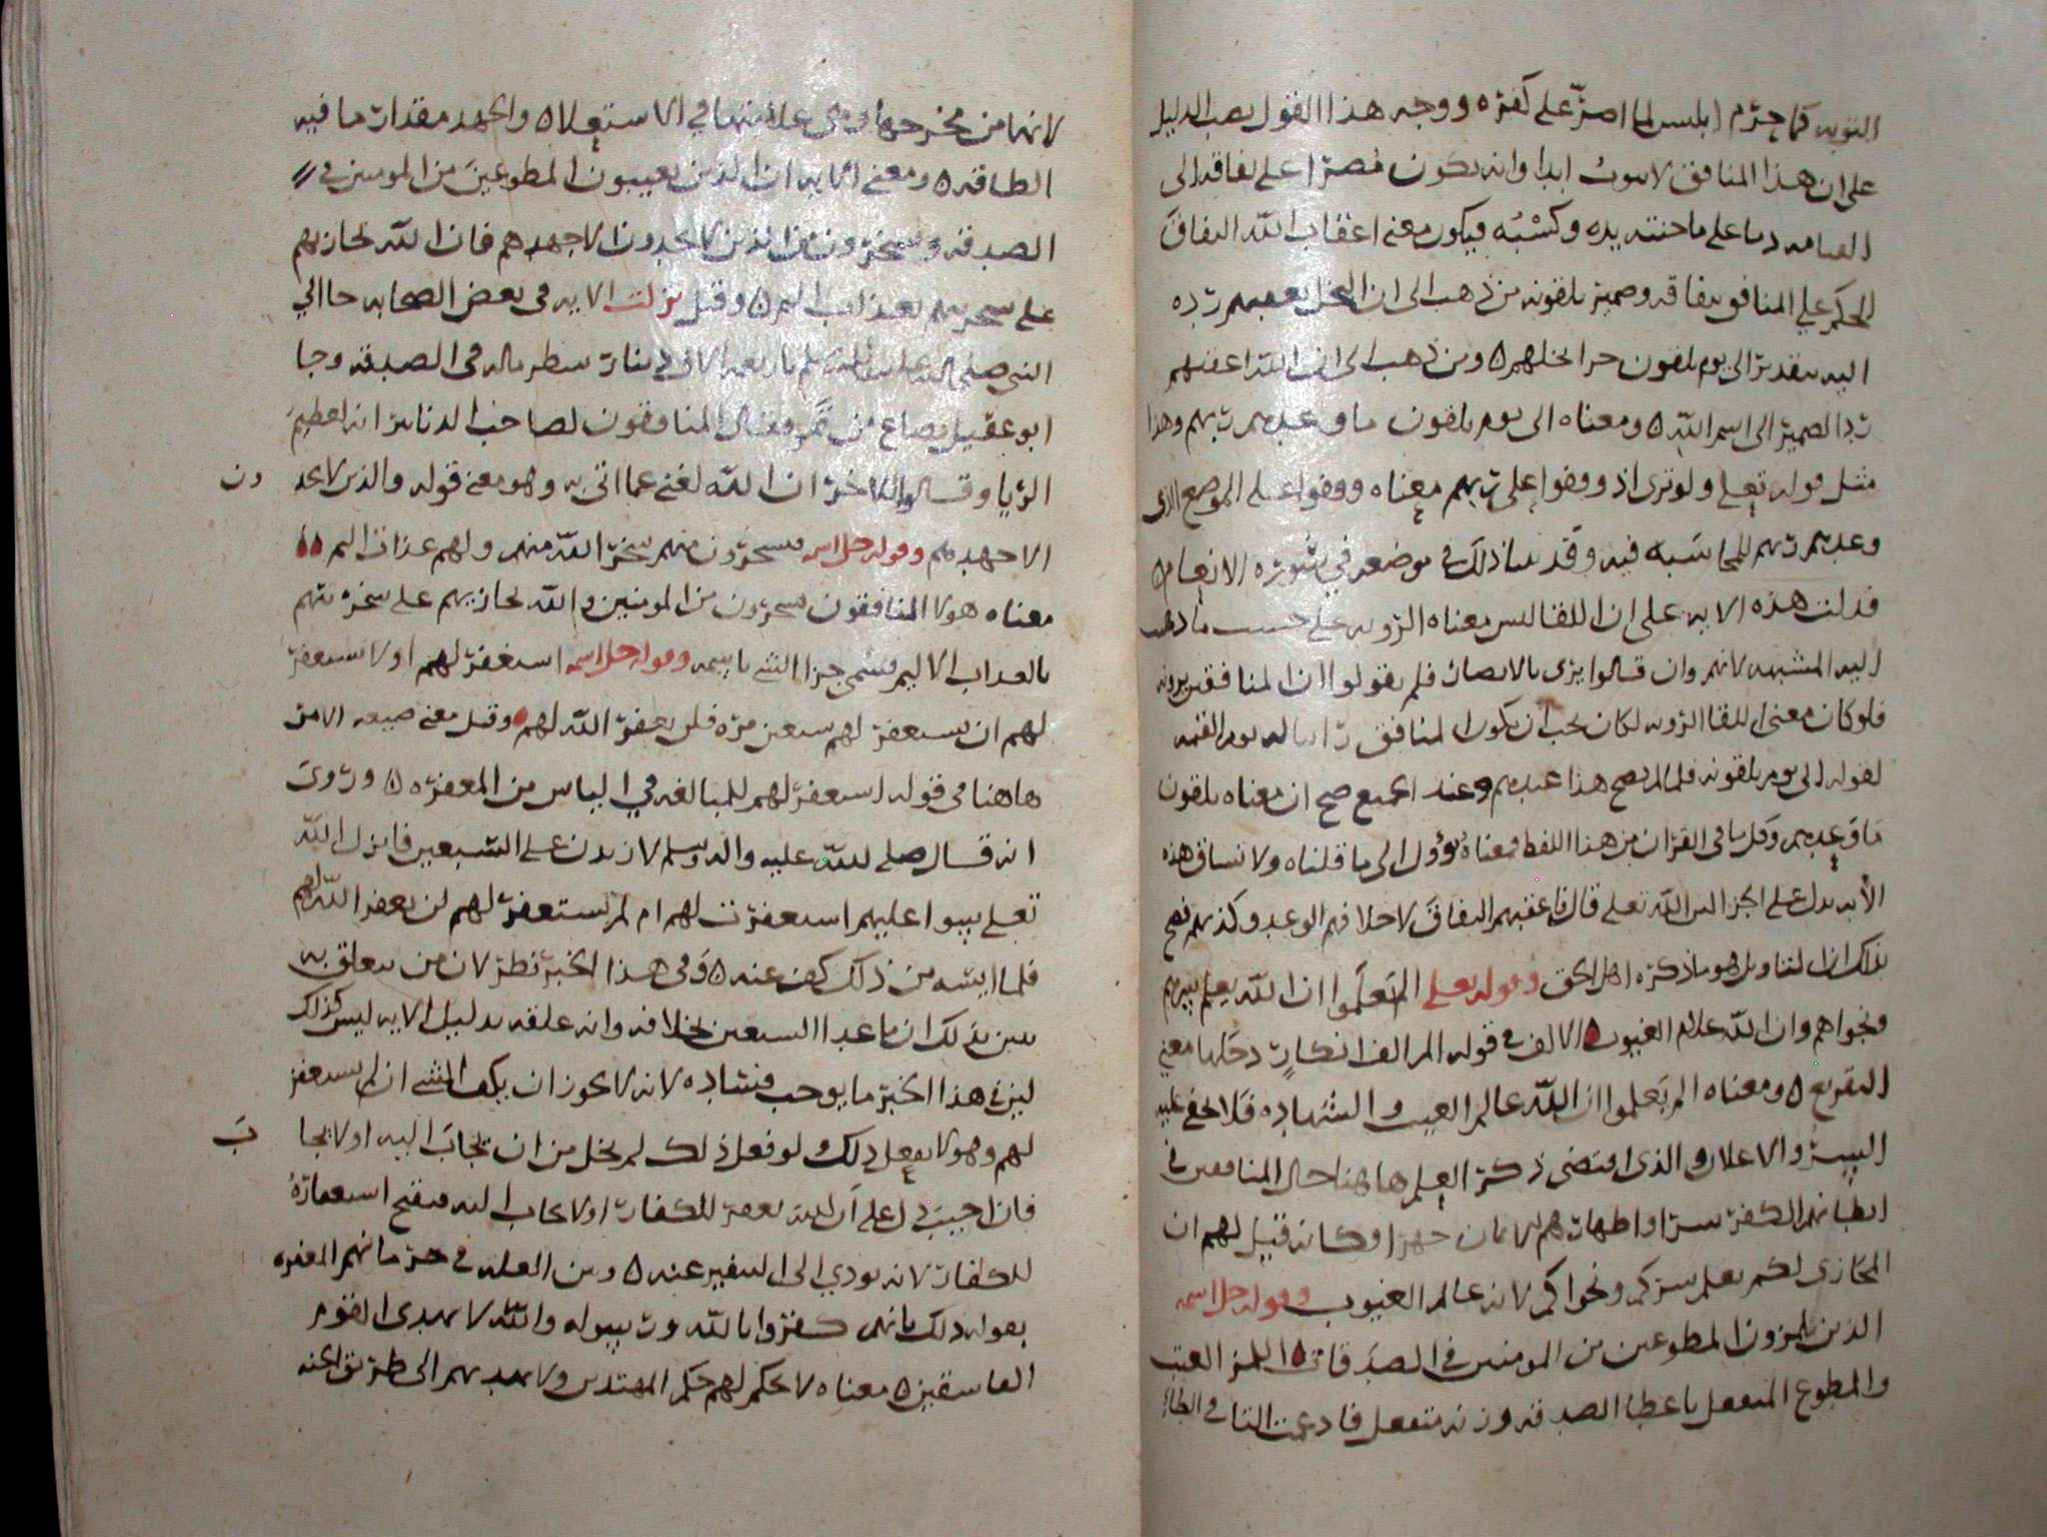 التوبه كما حرم ابليس لما اصر على كفره ووجه هذا القول نصب الدليل
على ان هذا المنافق لا يتوب ابدا وانه يكون مصرا على نفاقه الى
القيامه على ما جنته يده وكسبه فيكون معنى اعقاب الله النفاق
الحكم على المنافق بنفاقه وضمير يلقونه من ذهب الى ان البخل يعقبهم رده
اليه بتقدير الى يوم يلقون جزا بخلهم ومن ذهب الى ان الله اعقبهم
رد الضمير الى اسم الله ومعناه الى يوم يلقون ما وعدهم ربهم وهذا
مثل قوله تعلى ولو ترى اذ وقفوا على ربهم معناه وقفوا على الموضع الذي
وعدهم ربهم للمحاسبه فيه وقد بينا ذلك في موضعه في سوره الانعام
فدلت هذه الايه على ان اللقا ليس معناه الرويه على حسب ما ذهب
اليه المشبهه لانهم وان قالوا يرى بالابصار فلم يقولوا ان المنافقين يرونه
فلو كان معنى اللقا الرويه لكان يجب ان يكون المنافق رائيا له يوم القيمه
لقوله الى يوم يلقونه فلما لم يصح هذا عندهم وعند الجميع صح ان معناه يلقون
ما وعدهم وكل ما في القران من هذا اللفظ فمعناه يؤول الى ما قلناه ولانساق هذه
الايه يدل على الجزا لان الله تعلى قال فاعقبهم النفاق لاخلافهم الوعد وكذبهم فصح
بذلك ان التاويل هو ما ذكره اهل الحق وقوله تعلى الم تعلموا ان الله يعلم سرهم
ونجواهم وان الله علام الغيوب الالف في قوله الم الف انكار دخلها معنى
التقريع ومعناه الم تعلموا ان الله عالم الغيب والشهاده فلا يخفى عليه
السر والاعلان والذي اقتضى ذكر العلم هاهنا حال المنافقين في
ابطانهم الكفر سرا واظهارهم الايمان جهرا وكانه قيل لهم ان
المجازي لكم يعلم سركم ونجواكم لانه عالم الغيوب وقوله جل اسمه
الذين يلمزون المطوعين من المومنين في الصدقات اللمز العيب
والمطوع المتنفل باعطا الصدقه وزنه متفعل فادغمت التا في الطا
لانها من مخرجها وهي اعلا منها في الاستعلا والجهد مقدار ما فيه
الطاقه ومعنى الايه ان الذين يعيبون المطوعين من المومنين في
الصدقه ويسخرون من الذين لا يجدون الا جهدهم فان الله يجازيهم
على سخريتهم بعذاب اليم وقيل نزلت الايه في بعض الصحابه جا الى
النبي صلى الله عليه وسلم باربعه الاف دينار شطر ماله في الصدقه وجا
ابو عقيل بصاع من تمر فقال المنافقون لصاحب الدنانير انه لعظيم
الريا وقالوا للاخر ان الله لغني عما اتى به وهو معنى قوله والذين لا يجد ون
الا جهدهم وقوله جل اسمه فيسخرون منهم سخر الله منهم ولهم عذاب اليم
معناه هولا المنافقون يسخرون من المومنين والله يجازيهم على سخرتهم
بالعذاب الاليم فسمى جزا الشي باسمه وقوله جل اسمه استغفر لهم او لا تستغفر
لهم ان تستغفر لهم سبعين مره فلن يغفر الله لهم وقيل معنى صيغه الامر
هاهنا في قوله استغفر لهم للمبالغه في الياس من المغفره وروى
انه قال صلى الله عليه واله وسلم لازيدن على السبعين فانزل الله
تعلى سوا عليهم استغفرت لهم ام لم تستغفر لهم لن يغفر الله لهم
فلما ايسه من ذلك كف عنه وفي هذا الخبر نظر لان من يتعلق به
يبين بذلك ان ما عدا السبعين بخلافه وانه علقه بدليل الايه ليس كذلك
لان في هذا الخبر ما يوجب فساده لانه لا يجوز ان يكف النبي ان لم يستغفر
لهم وهو لا يفعل ذلك ولو فعل ذلك لم يخل من ان يجاب اليه او لا يجا ب
فان اجيب دل على ان الله يغفر للكفار او لا يجاب اليه فيقبح استغفاره
للكفار لانه يودي الى التنفير عنه وبين العله في حرمانهم المغفره
بقوله ذلك بانهم كفروا بالله ورسوله والله لا يهدي القوم
الفاسقين معناه لا يحكم لهم حكم المهتدين ولا يهديهم الى طريق الجنه